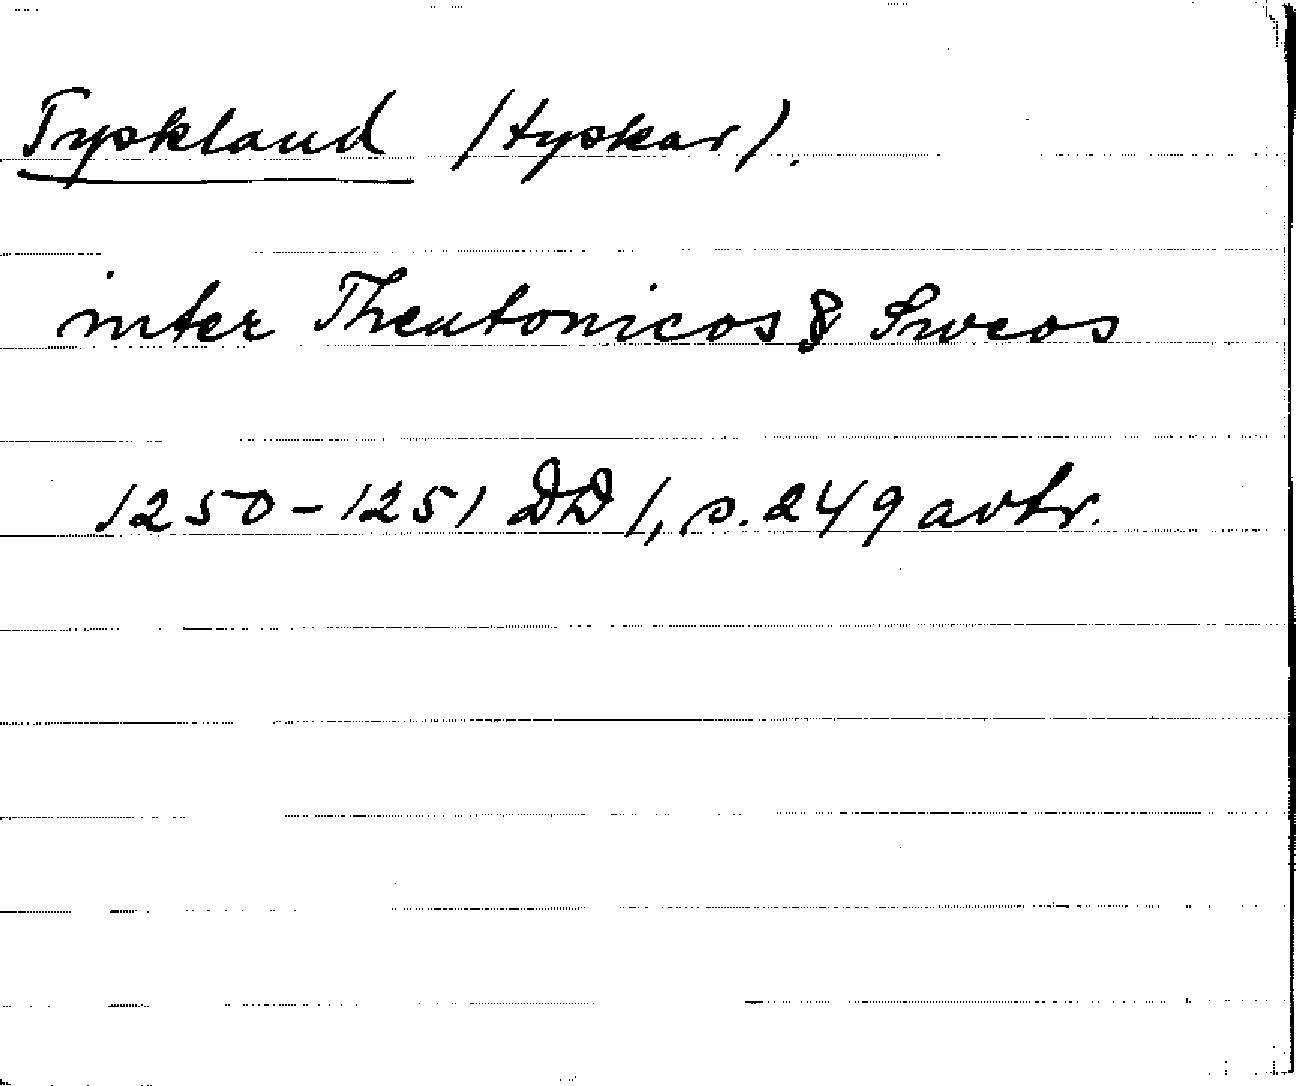 Tyskland (tyskar).
inter Theutonicos & Sweos
1250-1251 DD 1, s. 249 avtr.